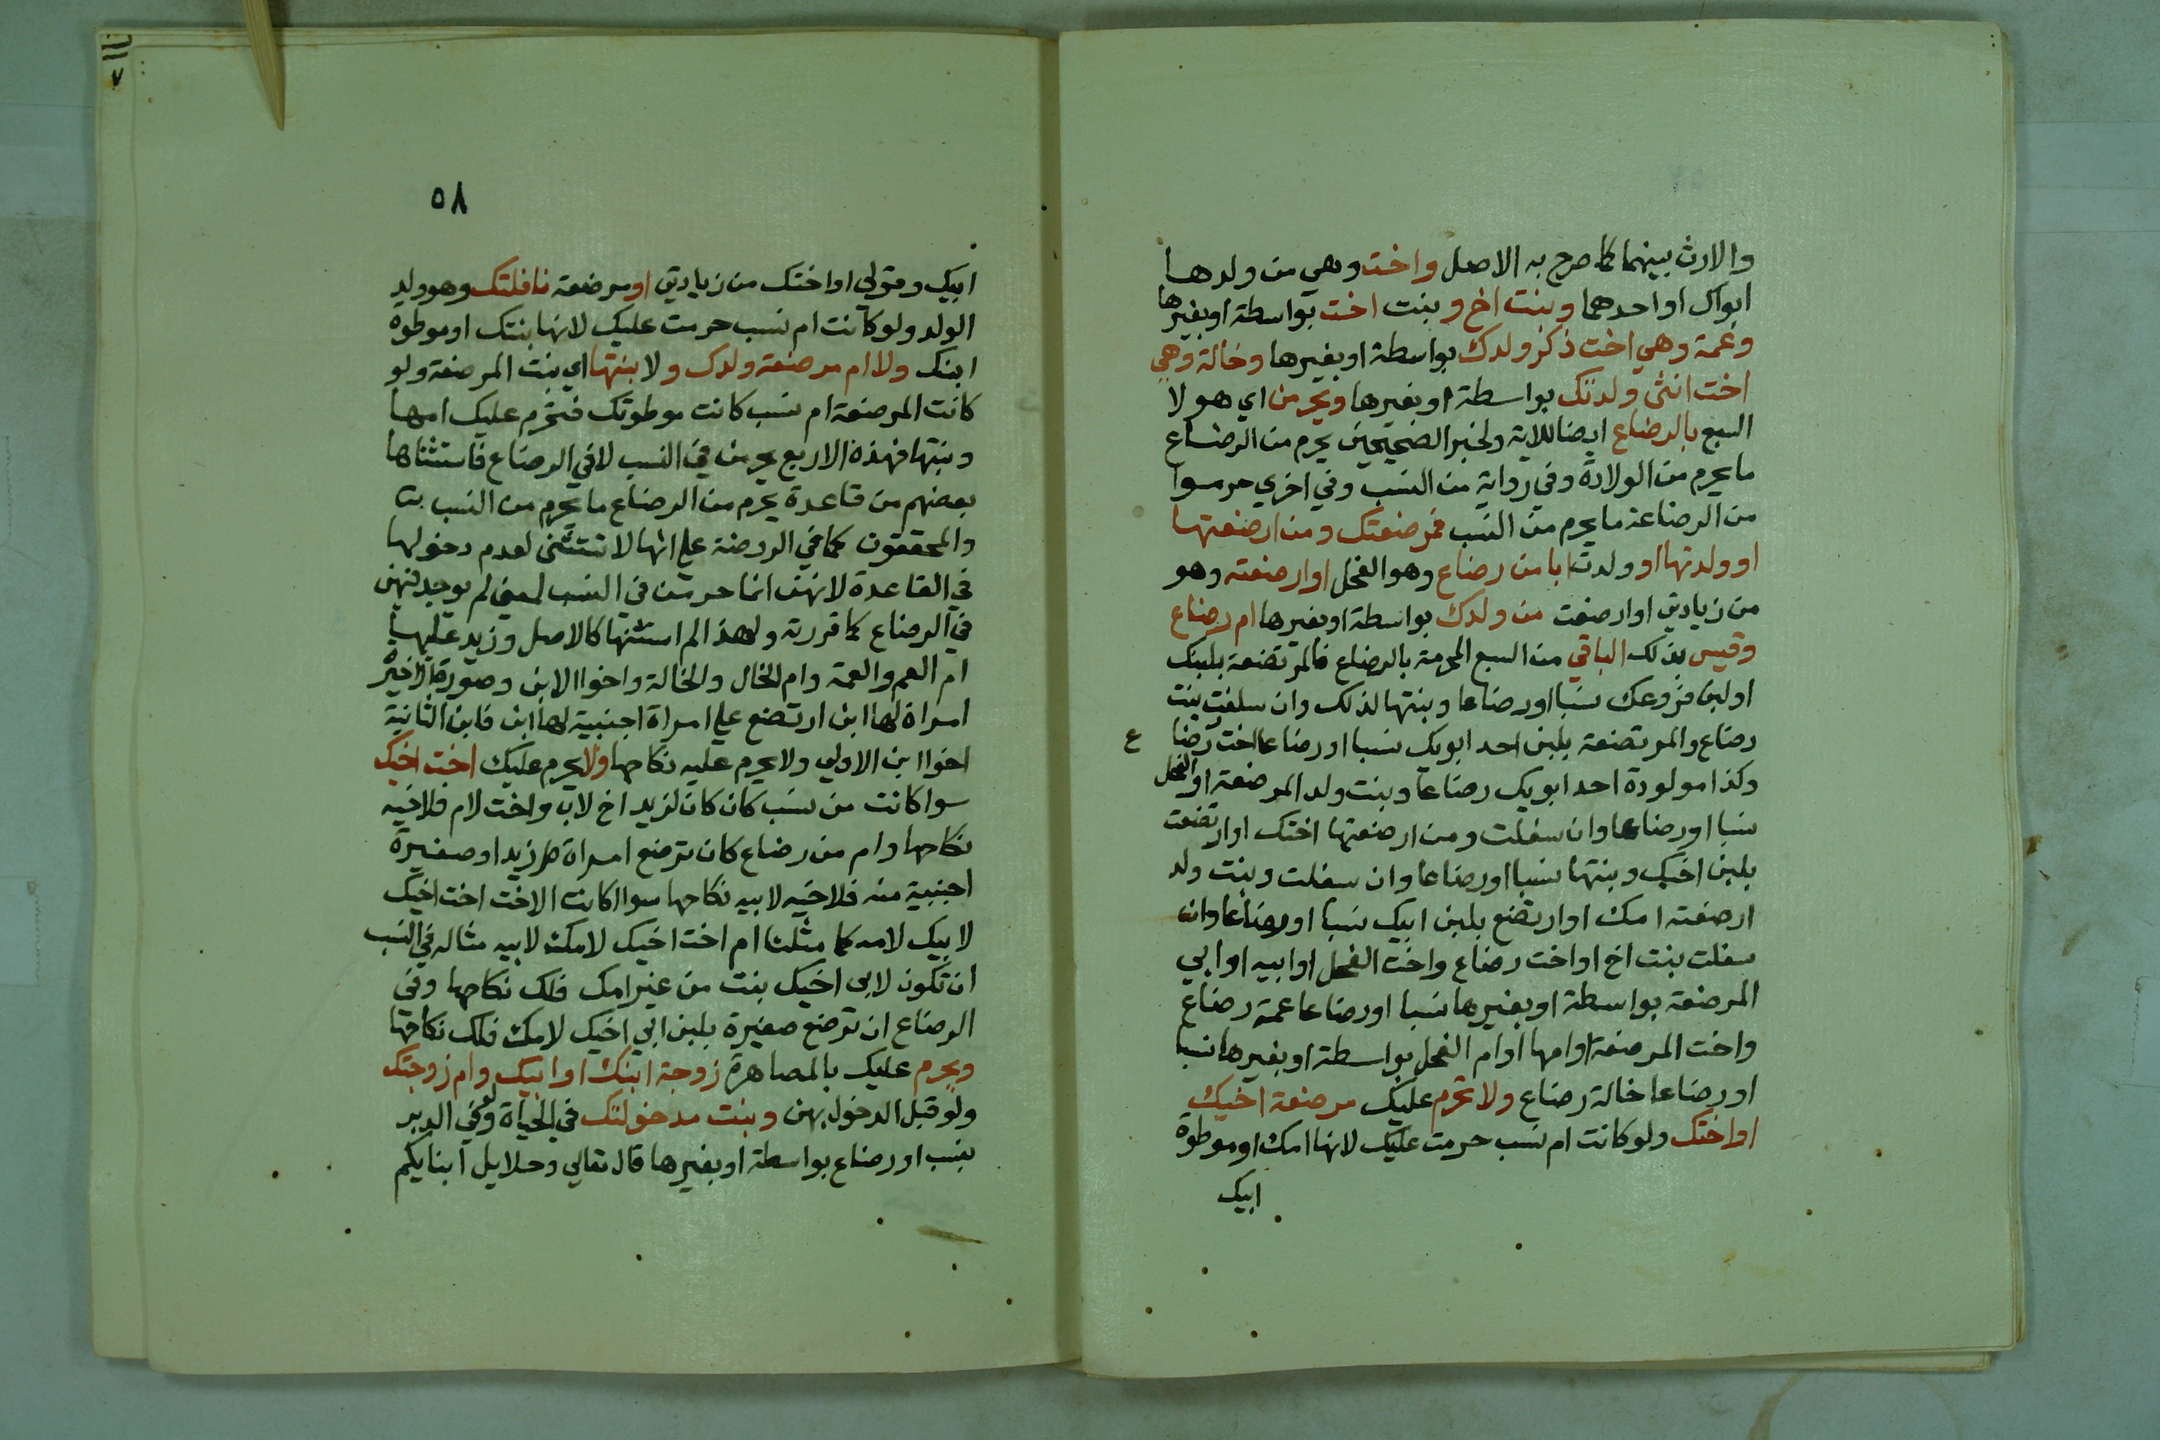 والارث بينهما كما صرح به الاصل واخت وهي من ولدها
ابواك او احدهما وبنت اخ وبنت اخت بواسطة او بغيرها
وعمة وهي اخت ذكر ولدك بواسطة او بغيرها وخالة وهي
اخت انثى ولدتك بواسطة او بغيرها ويحرمن اي هولا
السبع بالرضاع ايضا للاية ولخبر الصحيحين يحرم من الرضاع
ما يحرم من الولادة وفي رواية من النسب وفي اخري حرموا
من الرضاعة ما يحرم من النسب فمرضعتك ومن ارضعتها
او ولدتها او ولدت ابا من رضاع وهو الفحل او ارضعته وهو
من زيادتي او ارضعت من ولدك بواسطة او بغيرها ام رضاع
وقيس بذلك الباقي من السبع المحرمة بالرضاع فالمرتضعة بلبنك
او لبن فروعك نسبا او رضاعا وبنتها لذلك وان سفلت بنت
رضاع والمرتضعة بلبن احد ابويك نسبا او رضاعا اخت رضا
ع
وكذا مولودة احد ابويك رضاعا وبنت ولد المرضعة او الفحل
نسبا او رضاعا وان سفلت ومن ارضعتها اختك او ارتضعت
بلبن اخيك وبنتها نسبا او رضاعا وان سفلت وبنت ولد
ارضعته امك او ارتضع بلبن ابيك نسبا او رضاعا وان
سفلت بنت اخ او اخت رضاع واخت الفحل او ابيه او ابي
المرضعة بواسطة او بغيرها نسبا او رضاعا عمة رضاع
واخت المرضعة او امها او ام الفحل بواسطة او بغيرها نسبا
او رضاعا خالة رضاع ولا تحرم عليك مرضعة اخيك
او اختك ولو كانت ام نسب حرمت عليك لانها امك او موطوة
ابيك
٥٨
ابيك وقولي او اختك من زيادتي او مرضعة نافلتك وهو ولد
الولد ولو كانت ام نسب حرمت عليك لانها بنتك او موطوة
ابنك ولا ام مرضعة ولدك ولا بنتها اي بنت المرضعة ولو
كانت المرضعة ام نسب كانت موطوتك فتحرم عليك امها
وبنتها فهذه الاربع يحرمن في النسب لا في الرضاع فاستثناها
بعضهم من قاعدة يحرم من الرضاع ما يحرم من النسب
والمحققون كما في الروضة علي انها لا تستثنى لعدم دخولها
في القاعدة لانهن انما حرمن في النسب لمعني لم يوجد فيهن
في الرضاع كما قررته ولهذا لم استثنها كالاصل وزيد عليها
ام العم والعمة وام الخال والخالة واخو الابن وصورة الاخيرة
امراة لها ابن ارتضع علي امراة اجنبية لها ابن فابن الثانية
اخو ابن الاولي ولا يحرم عليه نكاحها ولا يحرم عليك اخت اخيك
سوا كانت من نسب كان كان لزيد اخ لاب واخت لام فلاخيه
نكاحها وام من رضاع كان ترضع امراة زيدا وصغيرة
اجنبية منه فلاخيه لابيه نكاحها سوا اكانت الاخت اخت اخيك
لابيك لامه كما مثلنا ام اخت اخيك لامك لابيه مثاله في النسب
ان تكون لابي اخيك بنت من غير امك فلك نكاحها وفي
الرضاع ان ترضع صغيرة بلبن ابي اخيك لامك فلك نكاحها
ويحرم عليك بالمصاهرة زوجة ابنك او ابيك وام زوجتك
ولو قبل الدخول بهن وبنت مدخولتك في الحياة ولو في الدبر
بنسب او رضاع بواسطة او بغيرها قال تعالي وحلايل ابنايكم